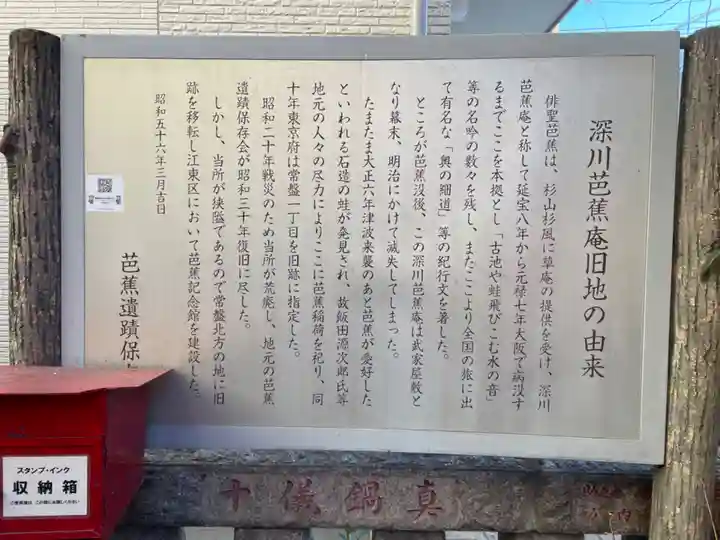 深川芭蕉庵旧地の由来
俳聖芭蕉は、杉山杉風に草庵の提供を受け、深川
芭蕉庵と称して延宝八年から元禄七年大阪で病没す
るまでここを本拠とし「古池や蛙飛びこむ水の音」
等の名吟の数々を残し、またここより全国の旅に出
て有名な「奥の細道」等の紀行文を著した。
ところが芭蕉没後、この深川芭蕉庵は武家屋敷と
なり幕末、明治にかけて滅失してしまった。
たまたま大正六年津波来襲のあと芭蕉が愛好した
といわれる石造の蛙が発見され、故飯田源次郎氏等
地元の人々の尽力によりここに芭蕉稲荷を祀り、同
十年東京府は常盤一丁目を旧跡に指定した。
昭和二十年戦災のため当所が荒廃し、地元の芭蕉
遺蹟保存会が昭和三十年復旧に尽した。
しかし、当所が狭隘であるので常盤北方の地に旧
跡を移転し江東区において芭蕉記念館を建設した。
昭和五十六年三月吉日
芭蕉遺蹟保
スタンプ・インク
収納箱
十儀鍋真